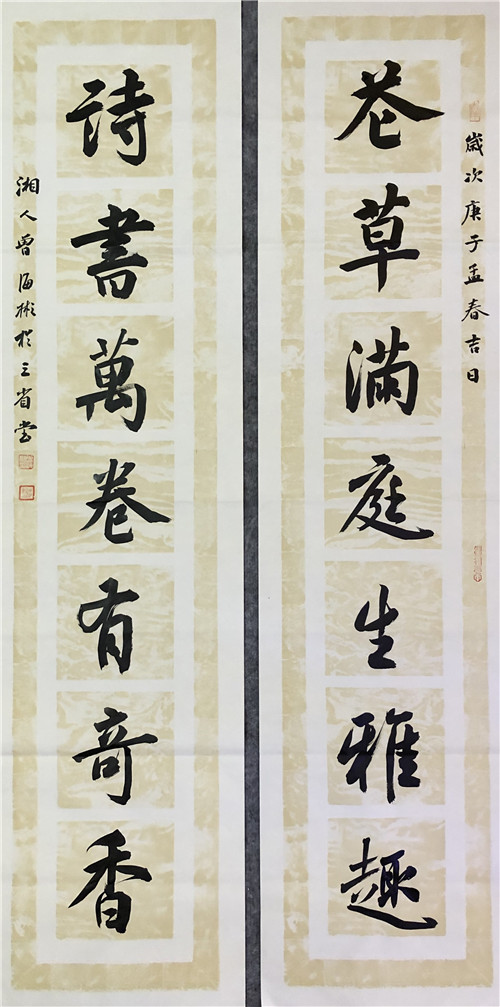 歲次庚子孟春吉日
花草滿庭生雅趣
詩書萬卷有奇香
湘人曾海彬於三省堂